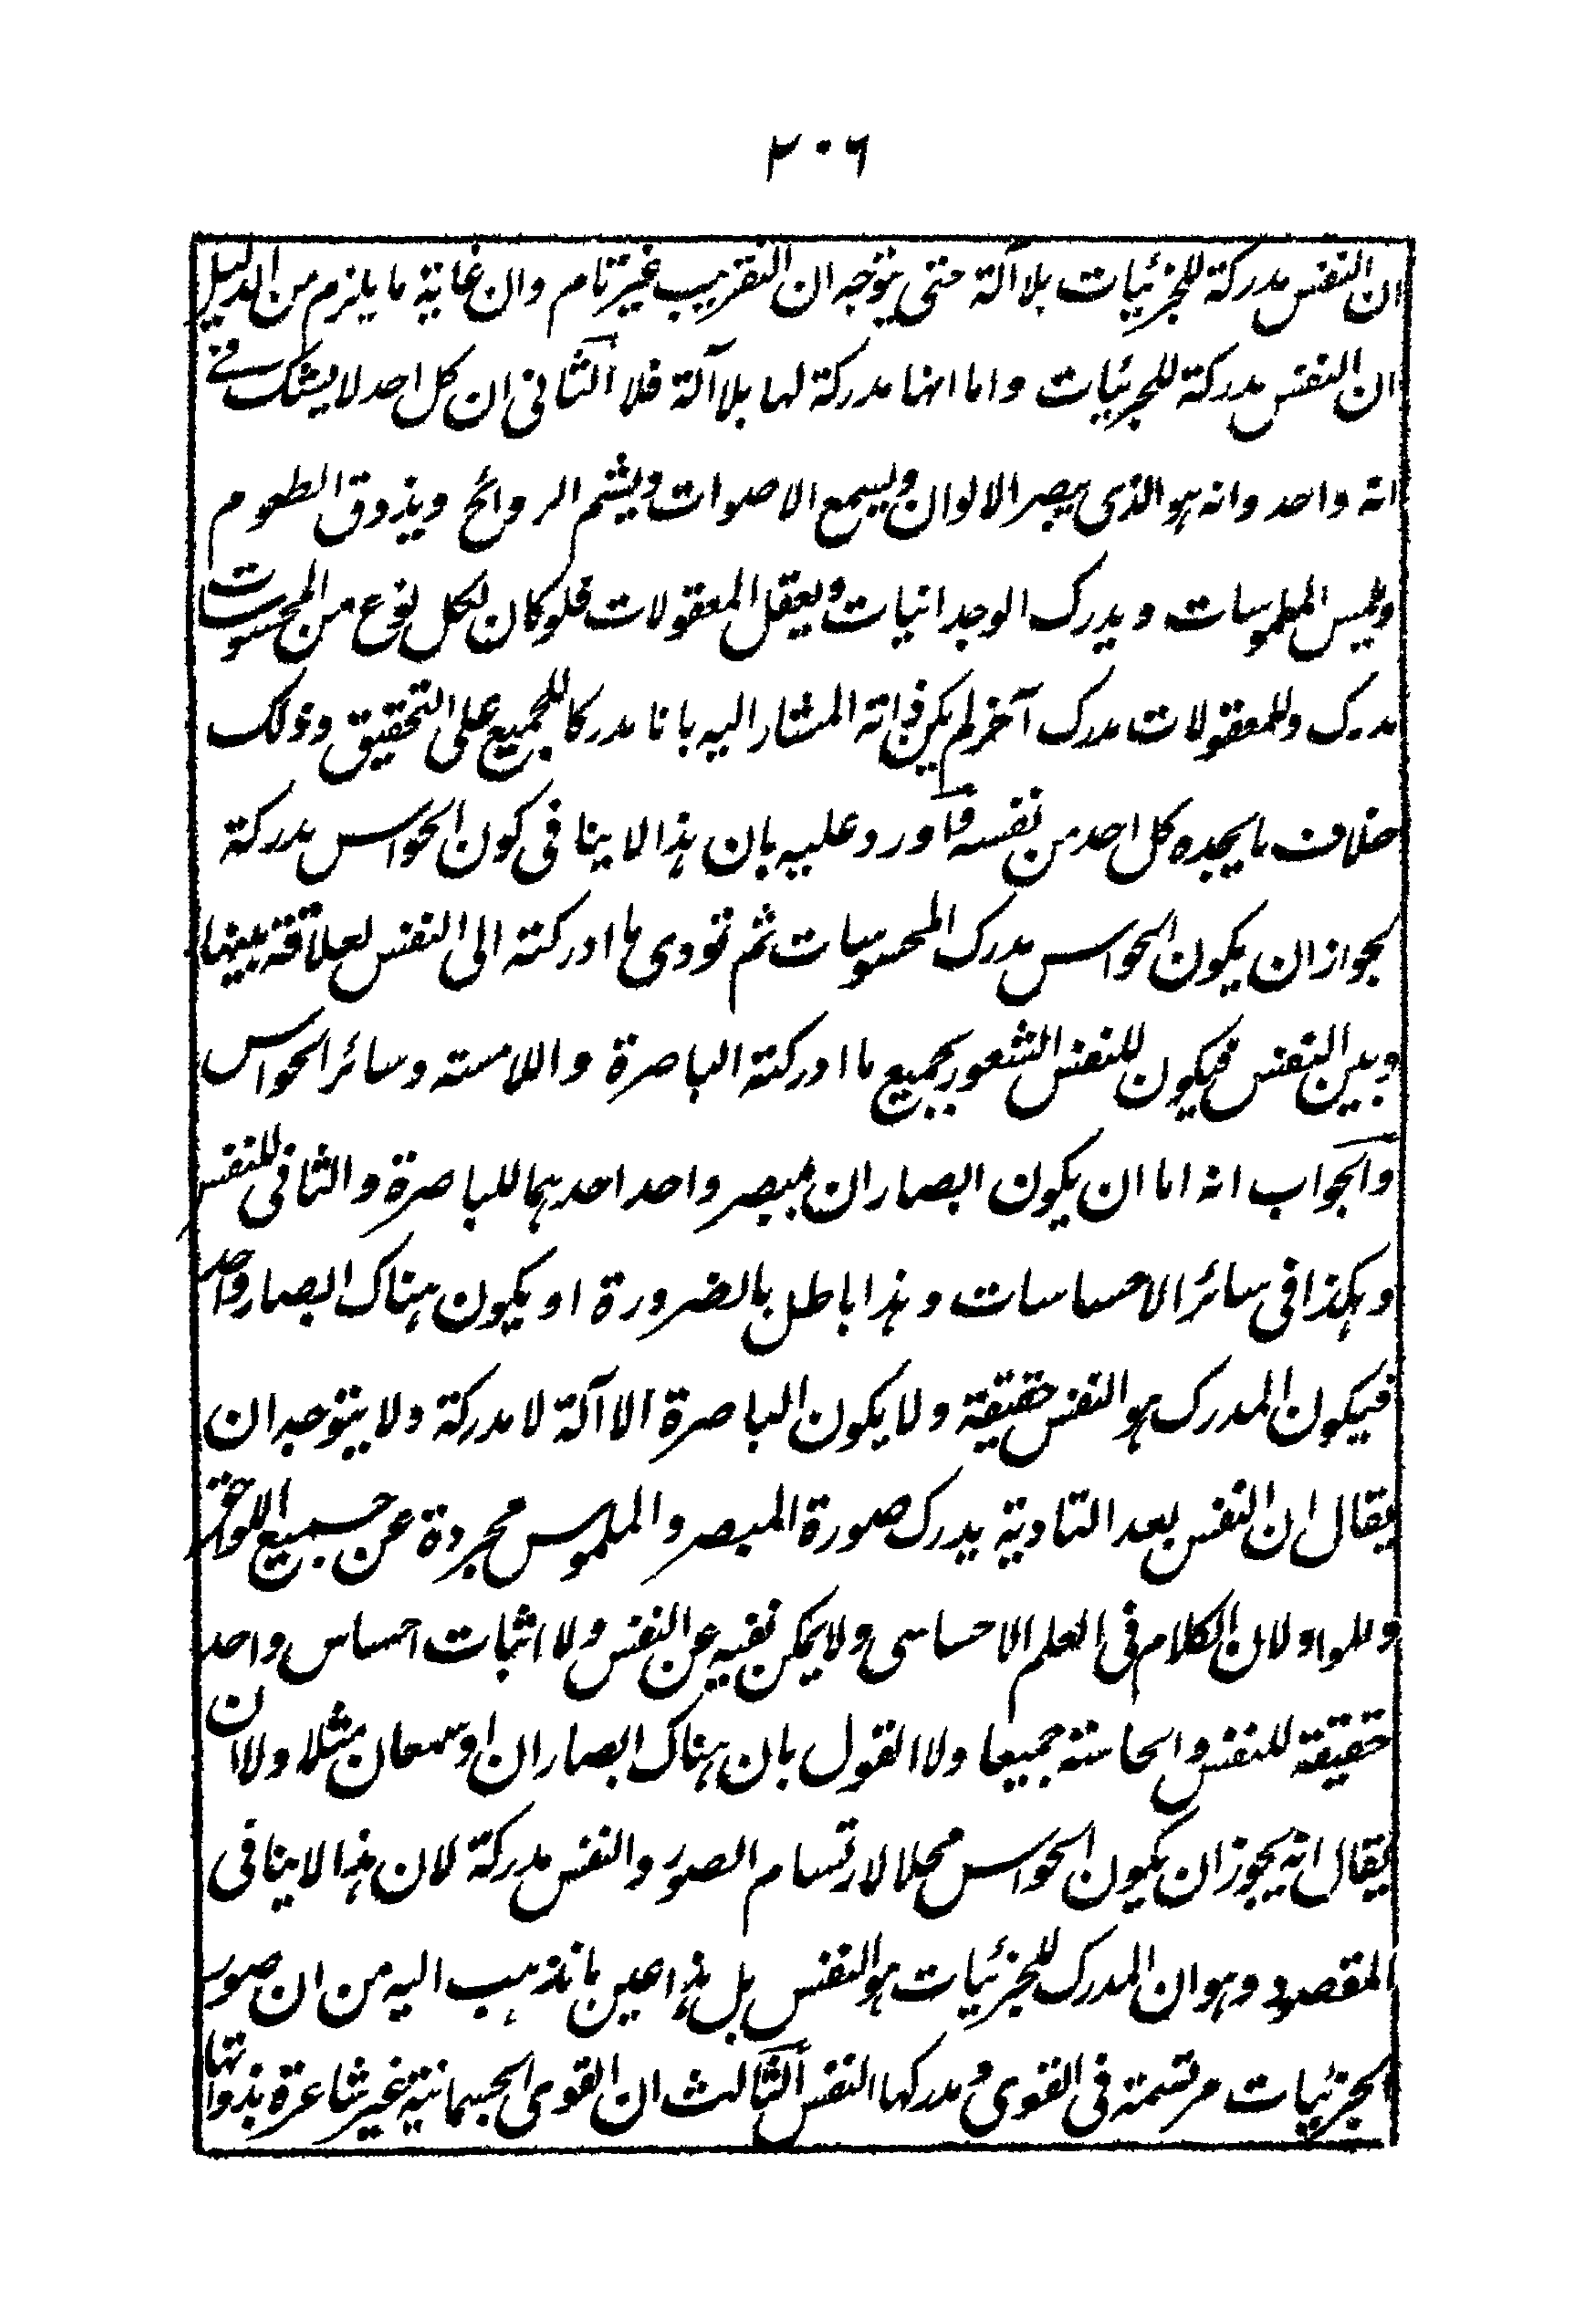 ٢٠٦
ان النفس مدركة للجزئيات بلا آلة حتى يتوجه ان التقريب غير تام وان غاية ما يلزم من الدليل
ان النفس مدركة للجزئيات واما انها مدركة لها بلا آلة فلا الثانى ان كل احد لا يشك فے
انه واحد وانه هو الذى يبصر الالوان ويسمع الاصوات ويشم الروائح ويذوق الطعوم
ويلمس الملموسات ويدرك الوجدانيات ويعقل المعقولات فلو كان لكل نوع من المحسوسات
مدرك وللمعقولات مدرك آخر لم يكن ذاته المشار اليه بانا مدركا للجميع على التحقيق وذلك
خلاف ما يجده كل احد من نفسه فاورد عليه بان هذا لا ينافى كون الحواس مدركة
لجواز ان يكون الحواس مدرك المحسوسات ثم تودى ما ادركته الى النفس لعلاقة بينها
وبين النفس فيكون للنفس الشعور بجميع ما ادركته الباصرة واللامسته وسائر الحواس
والجواب انه اما ان يكون ابصاران لمبصر واحد احدهما للباصرة والثانى للنفس
وهكذا فى سائر الاحساسات وهذا باطل بالضرورة او يكون هناك ابصار واحد
فيكون المدرك هو النفس حقيقة ولا يكون الباصرة الا آلة لا مدركة ولا يتوجه ان
يقال ان النفس بعد التادية يدرك صورة المبصر والملموس مجردة عن جميع اللواحق
وللمواد لان الكلام فى العلم الاحساسى ولا يمكن نفيه عن النفس ولا اثبات احساس واحد
حقيقة للنفس والحاسة جميعا ولا القول بان هناك ابصاران او سمعان مثلا ولا ان
يقال انه يجوز ان يكون الحواس محلا لارتسام الصور والنفس مدركة لان هذا لا ينافى
المقصود وهو ان المدرك للجزئيات هو النفس بل هذا عين ما نذهب اليه من ان صور
الجزئيات مرتسمة فى القوى ومدركها النفس الثالث ان القوى الجسمانية غير شاعرة بذواتها